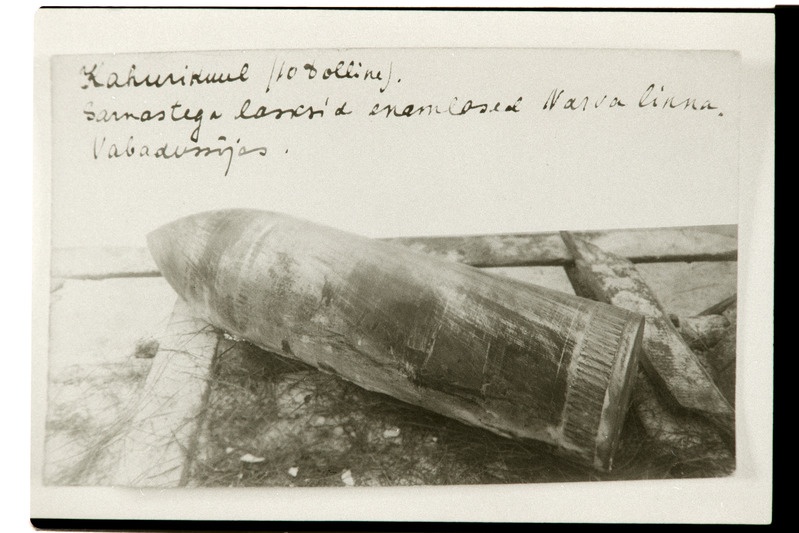 Kahurikuul (10 tolline).
Sarnastega lasksid enamlased Narva linna.
Vabadussõjas.